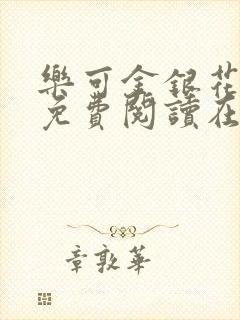 樂可金銀花
免費閱讀在
章敦華